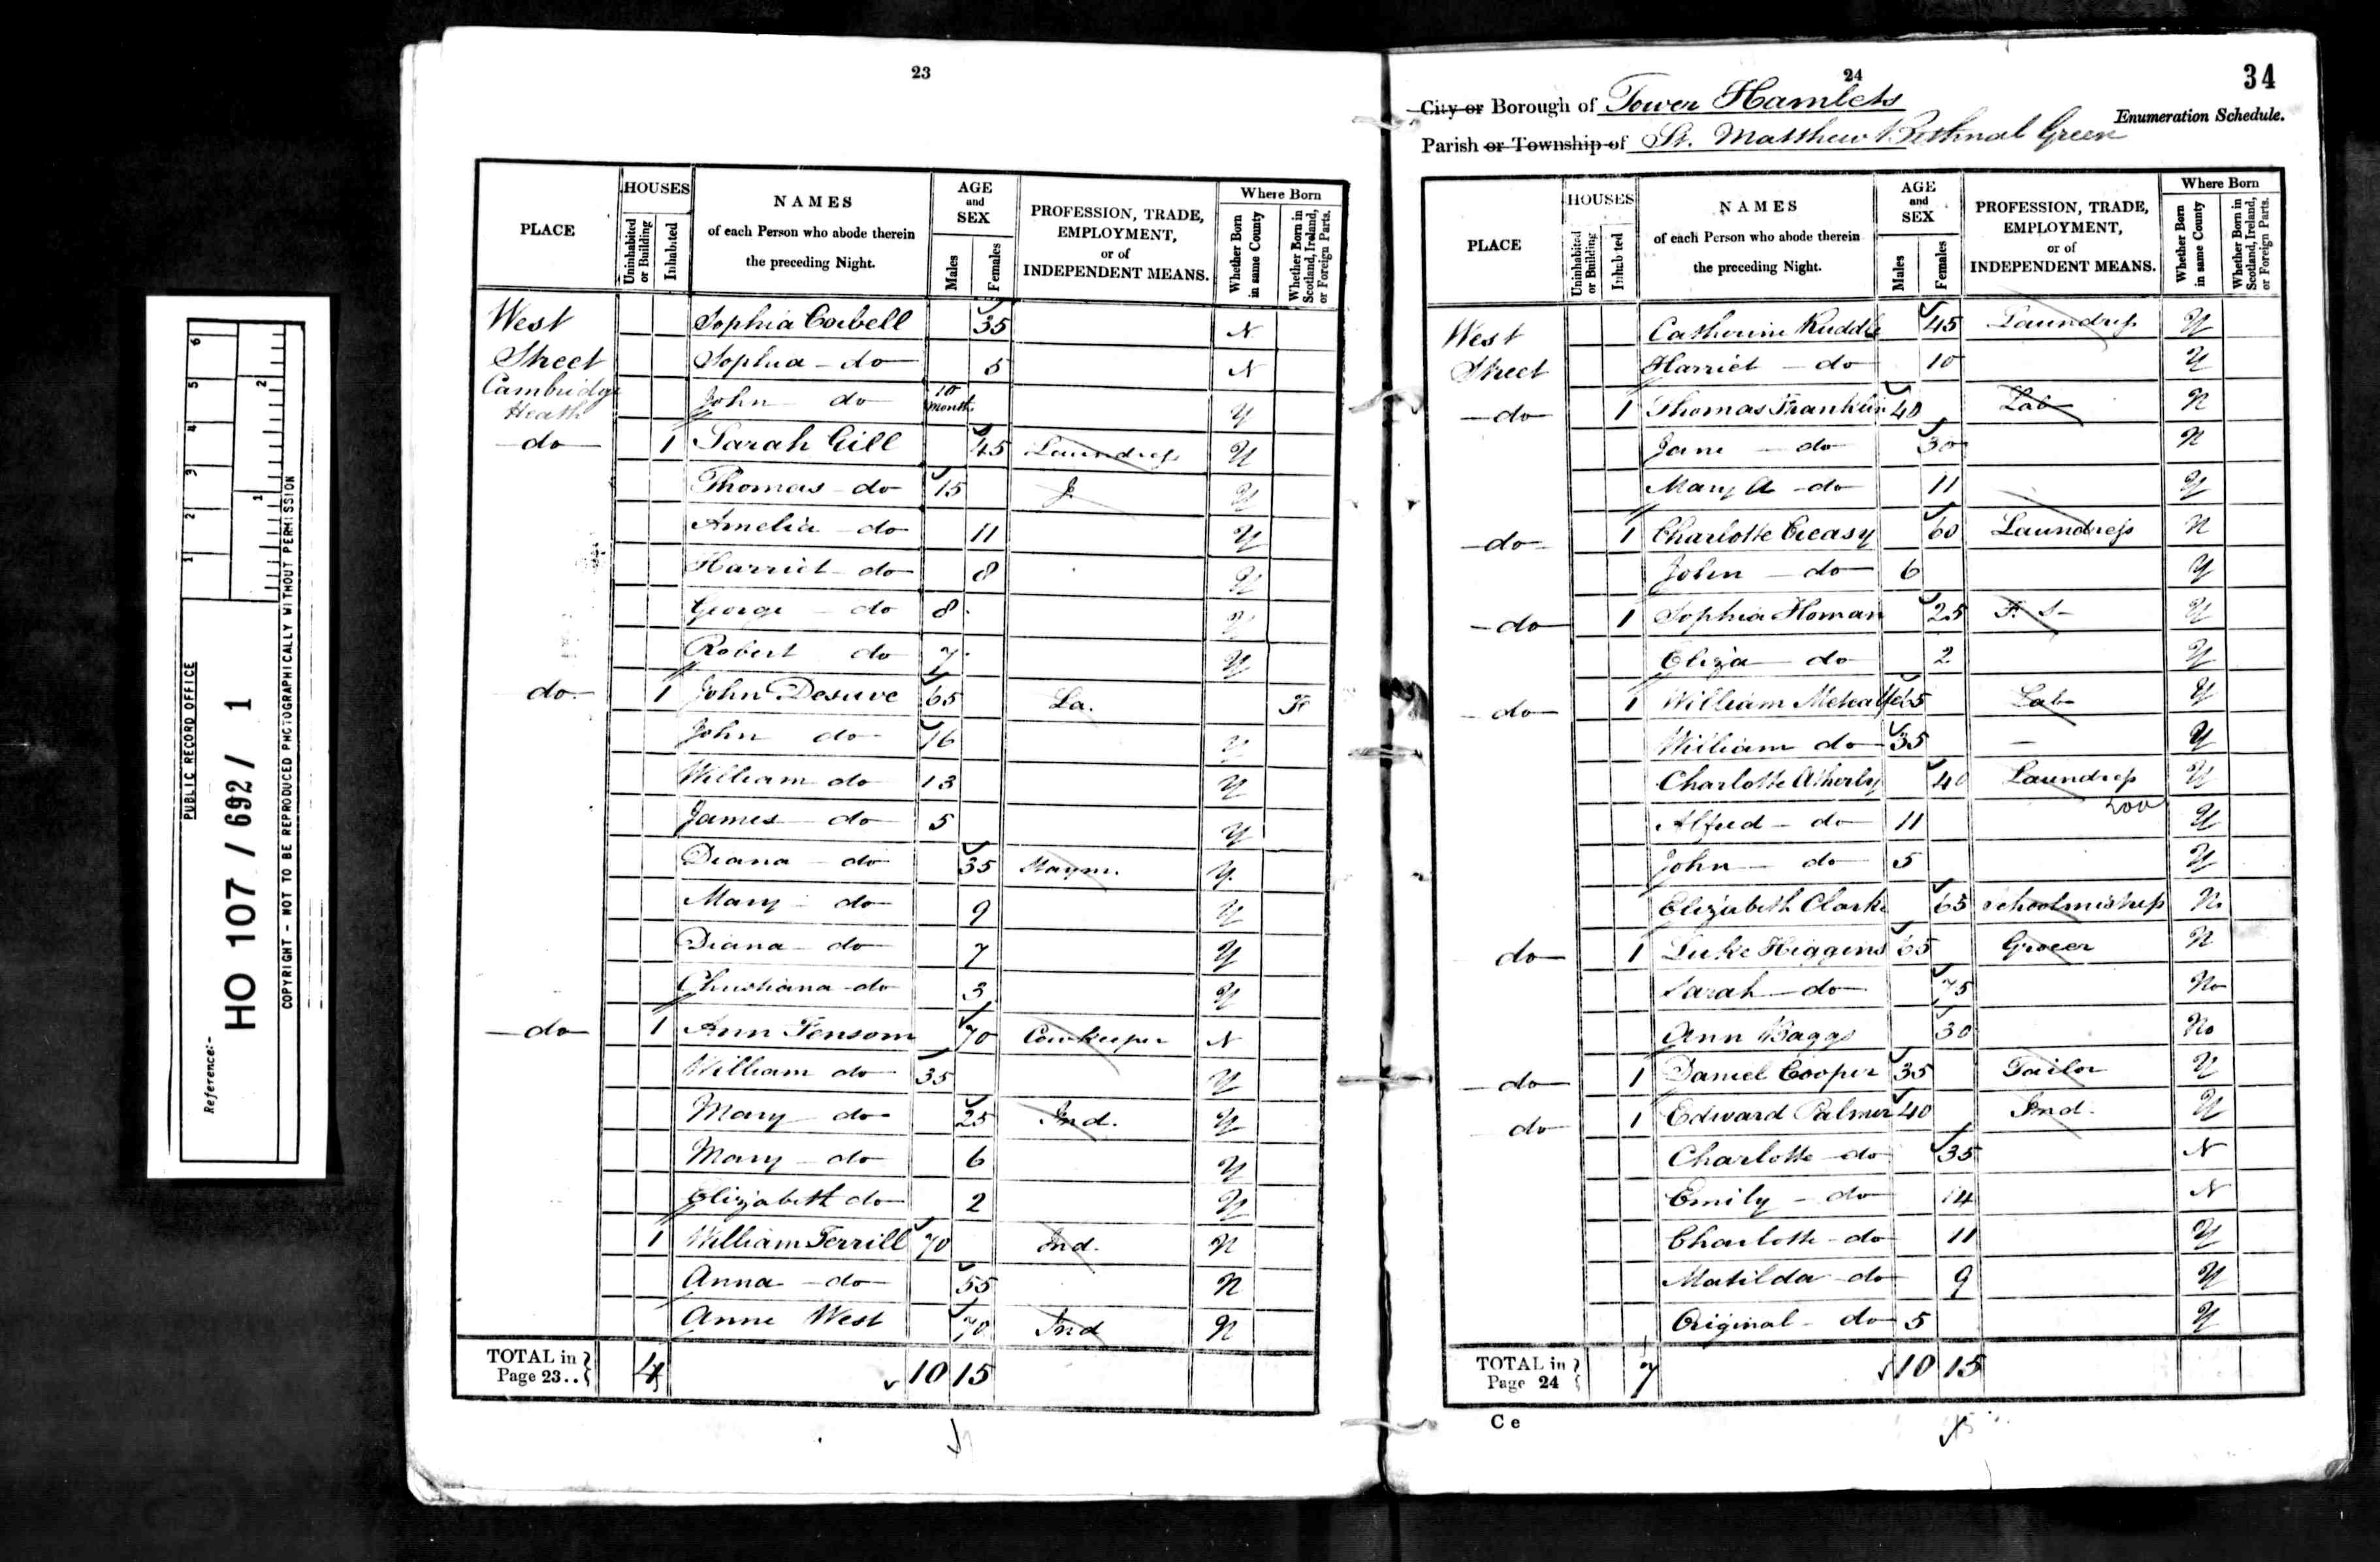 PUBLIC RECORD OFFICE
Reference:-
HO 107 / 692 / 1
COPYRIGHT - NOT TO BE REPRODUCED PHOTOGRAPHICALLY WITHOUT PERMISSION
1 2 3 4 5 6
1 2
23
PLACE
HOUSES
Uninhabited or Building
Inhabited
NAMES
of each Person who abode therein
the preceding Night.
AGE
and
SEX
Males
Females
PROFESSION, TRADE,
EMPLOYMENT,
or of
INDEPENDENT MEANS.
Where Born
Whether Born in same County
Whether Born in Scotland, Ireland, or Foreign Parts.
West Sophia Corbell 35 N
Street Sophia - do 5 N
Cambridge
Heath John do 10 Month Y
do 1 Sarah Gill 45 Laundress Y
Thomas - do 15 J Y
Amelia - do 11 Y
Harriet - do 8 Y
George - do 8 Y
Robert do 7 Y
do 1 John Desuve 65 La. F
John do 16 Y
William do 13 Y
James - do 5 Y
Diana - do 35 Y
Mary - do 9 Y
Diana - do 7 Y
Christiana - do 3 Y
do 1 Ann Fensom 70 Cowkeeper N
William do 35 Y
Mary - do 25 Ind. Y
Mary - do 6 Y
Elizabeth do 2 Y
1 William Terrill 70 Ind. N
Anna - do 55 N
Anne West 70 Ind N
TOTAL in
Page 23.. 4 10 15
24
34
City or Borough of Tower Hamlets
Enumeration Schedule.
Parish or Township of St. Matthew Bethnal Green
PLACE
HOUSES
Uninhabited or Building
Inhabited
NAMES
of each Person who abode therein
the preceding Night.
AGE
and
SEX
Males
Females
PROFESSION, TRADE,
EMPLOYMENT,
or of
INDEPENDENT MEANS.
Where Born
Whether Born in same County
Whether Born in Scotland, Ireland, or Foreign Parts.
West Catherine Ruddle 45 Laundress Y
Street Harriet - do 10 Y
do 1 Thomas Franklin 40 Lab N
Jane - do 30 N
Mary A - do 11 Y
do 1 Charlotte Creasy 60 Laundress N
John - do 6 Y
do 1 Sophia Homan 25 F. S Y
Eliza - do 2 Y
do 1 William Metcalfe 65 Lab Y
William do 35 - Y
Charlotte Atherly 40 Laundress Y
Alfred - do 11 Y
John - do 5 Y
Elizabeth Clarke 65 Schoolmistress N
do 1 Luke Higgins 65 Grocer N
Sarah - do 75 No
Ann Baggs 30 No
do 1 Daniel Cooper 35 Tailor Y
do 1 Edward Palmer 40 Ind. Y
Charlotte do 35 N
Emily - do 14 N
Charlotte - do 11 Y
Matilda do 9 Y
Original - do 5 Y
TOTAL in
Page 24 7 10 15
C e